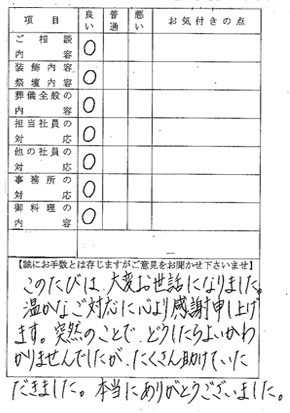 項目 良い 普通 悪い お気付きの点
ご相談内容 ○
装飾内容祭壇内容 ○
葬儀全般の内容 ○
担当社員の対応 ○
他の社員の対応 ○
事務所の対応 ○
御料理の内容 ○
【誠にお手数とは存じますがご意見をお聞かせ下さいませ】
このたびは、大変お世話になりました。
温かなご対応に心より感謝申し上げ
ます。突然のことで、どうしたらよいかわ
かりませんでしたが、たくさん助けていた
だきました。本当にありがとうございました。